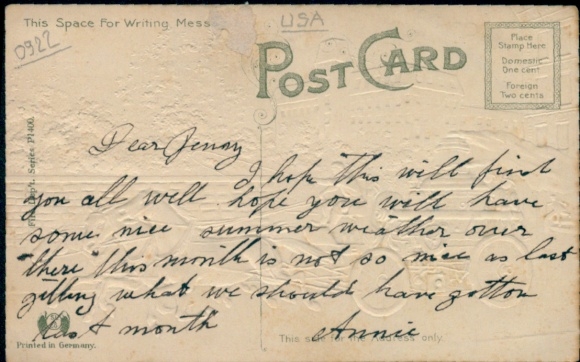 This Space For Writing Mess
USA
0922
POST CARD
Place
Stamp Here
Domestic
One cent
Foreign
Two cents
Series P1400.
Dear Jenny
I hope this will find
you all well hope you will have
some nice summer weather over
there this month is not so nice as last
getting what we should have gotton
last month
Annie
This side for the Address only.
Printed in Germany.